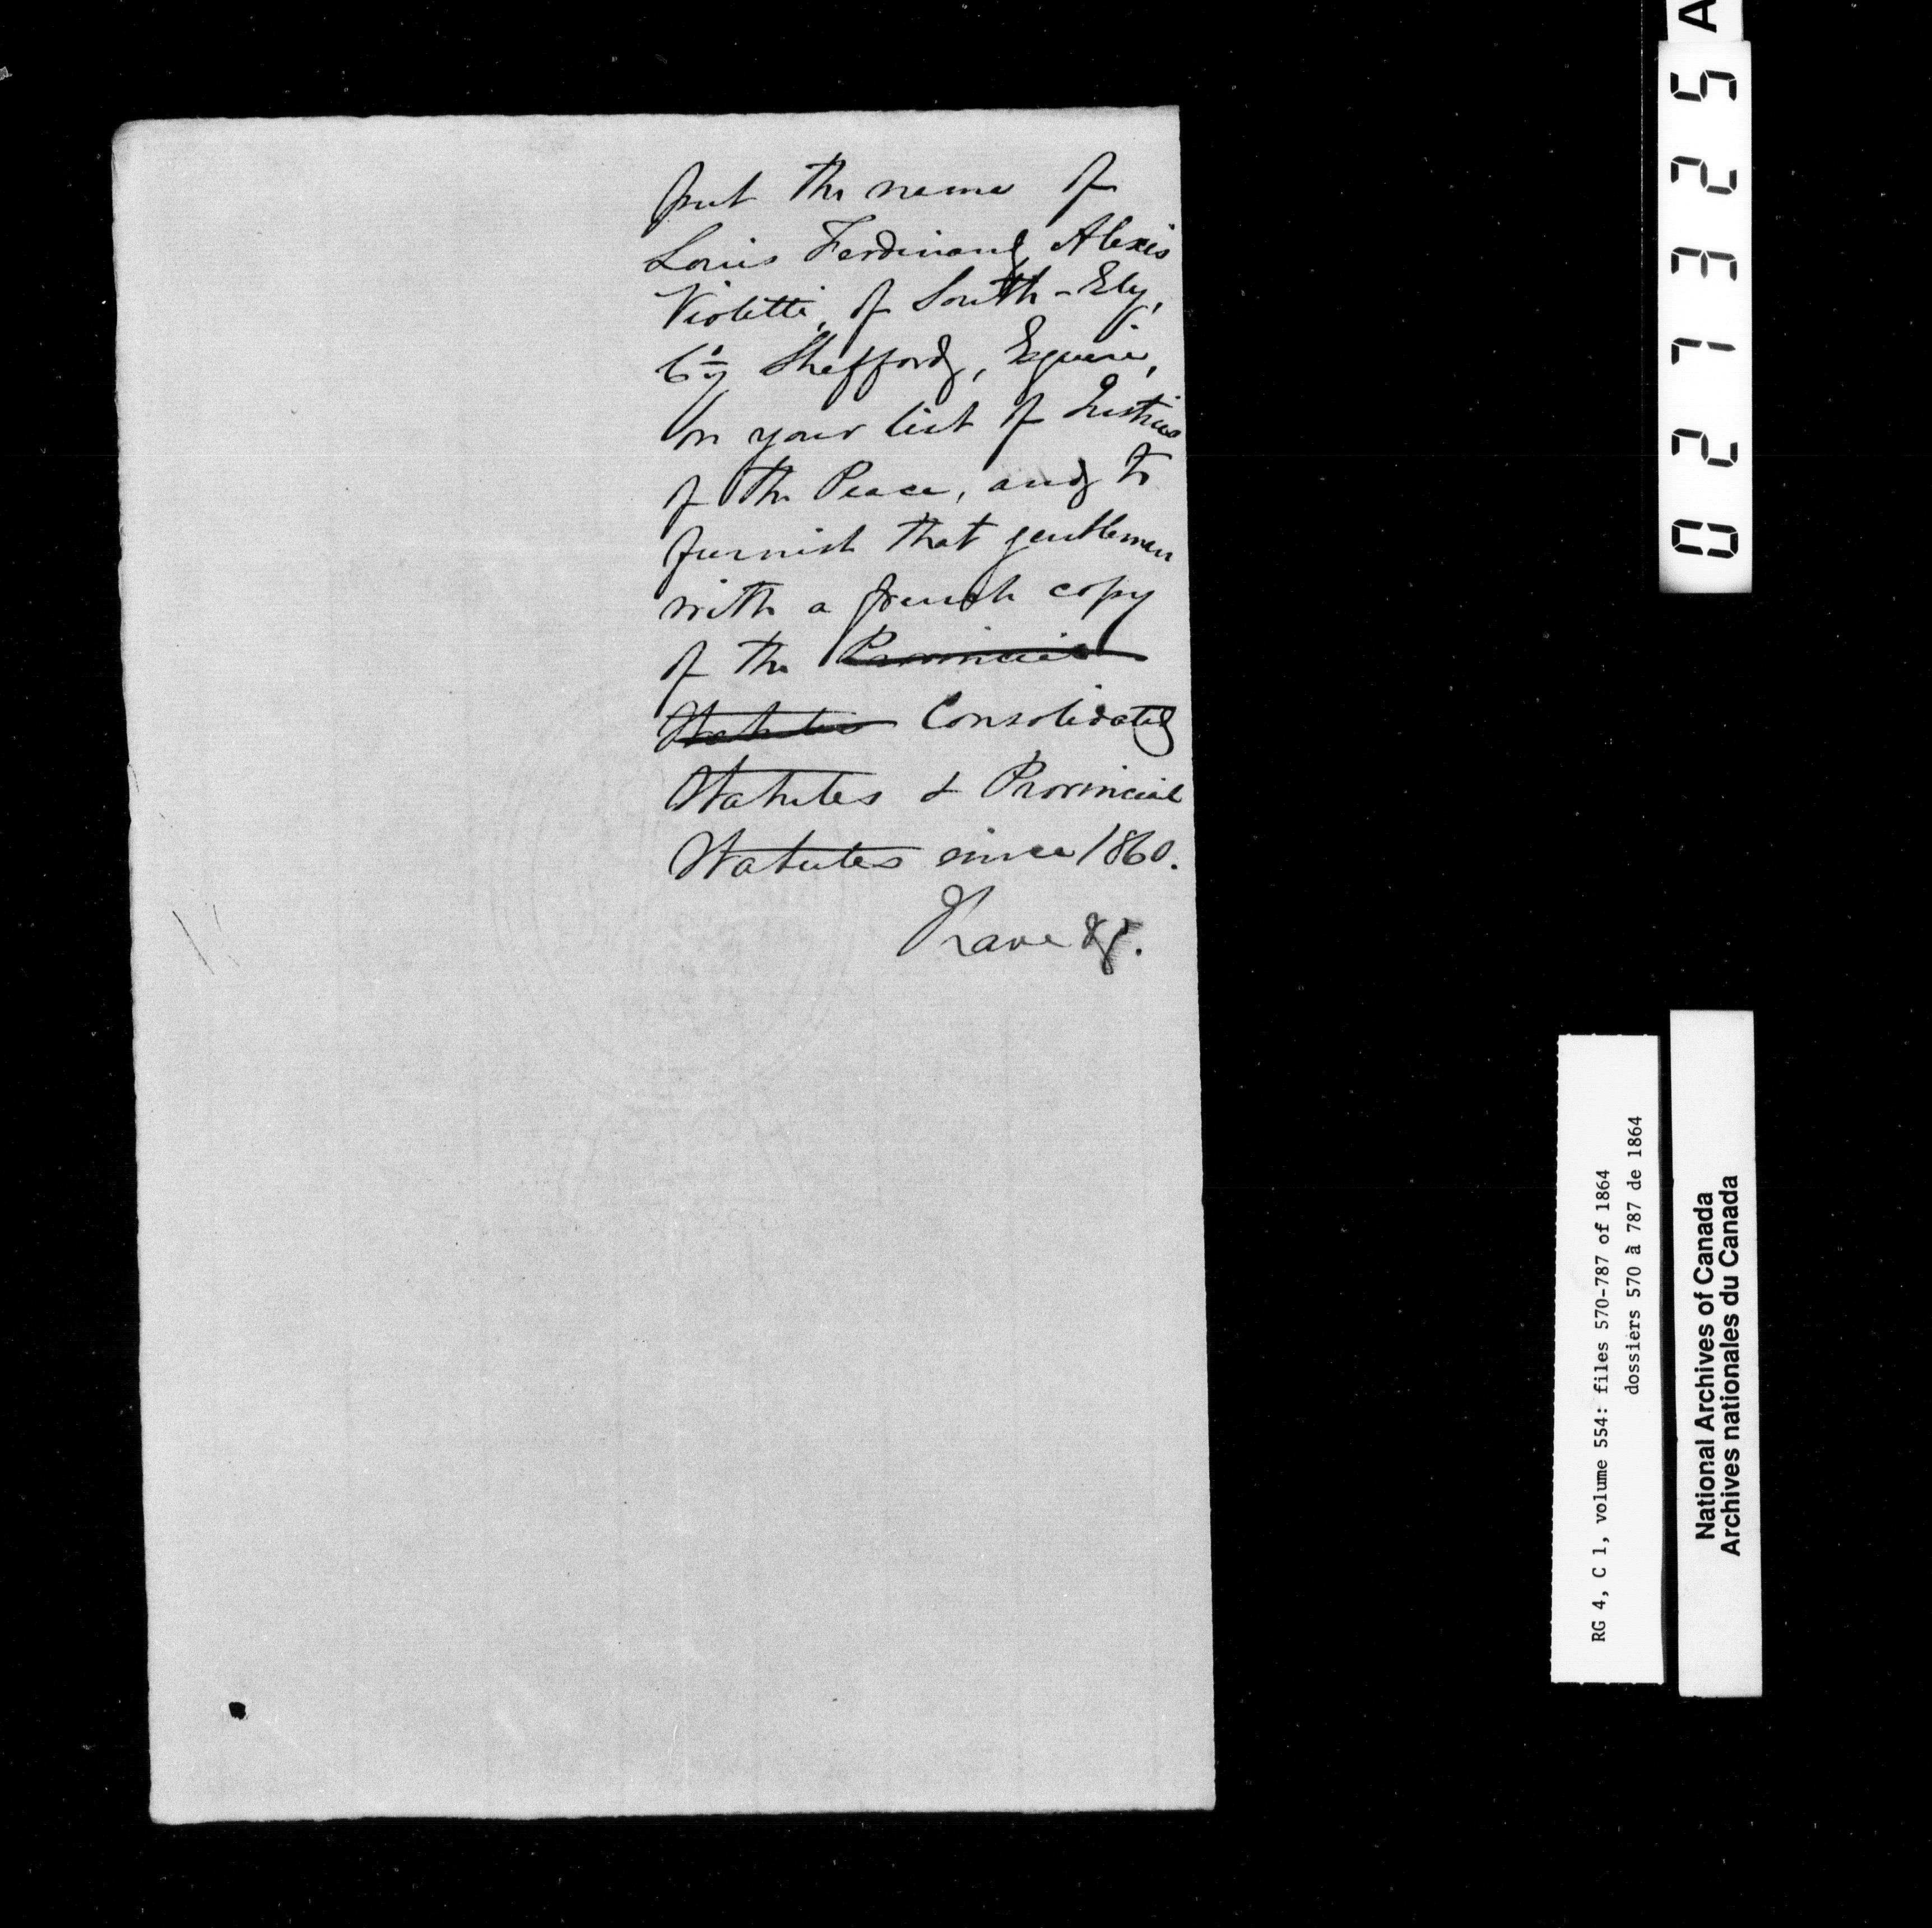 put the name of
Louis Ferdinand Alexis
Violette, of South-Ely,
Cty Shefford, Esquire,
on your list of Justices
of the Peace, and to
furnish that gentleman
with a french copy
of the Provincial
Statutes Consolidated
Statutes & Provincial
Statutes since 1860.
I have &c.
027325
A
RG 4, C 1, volume 554: files 570-787 of 1864
dossiers 570 à 787 de 1864
National Archives of Canada
Archives nationales du Canada